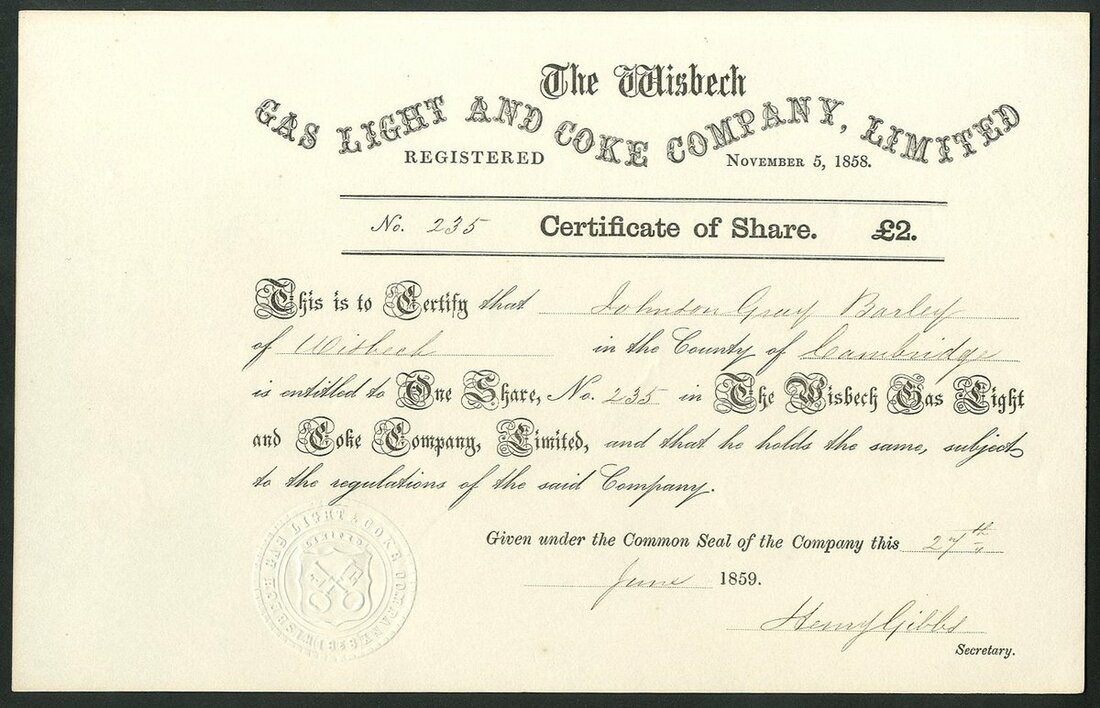 The Wisbech
GAS LIGHT AND COKE COMPANY, LIMITED
REGISTERED NOVEMBER 5, 1858.
No. 235 Certificate of Share. £2.
This is to Certify that Johnson Gray Barley
of Wisbech in the County of Cambridge
is entitled to One Share, No. 235 in The Wisbech Gas Light
and Coke Company, Limited, and that he holds the same, subject
to the regulations of the said Company.
Given under the Common Seal of the Company this 27th
June 1859.
Henry Gibbs
Secretary.
WISBECH GAS LIGHT & COKE COMPANY
LIMITED